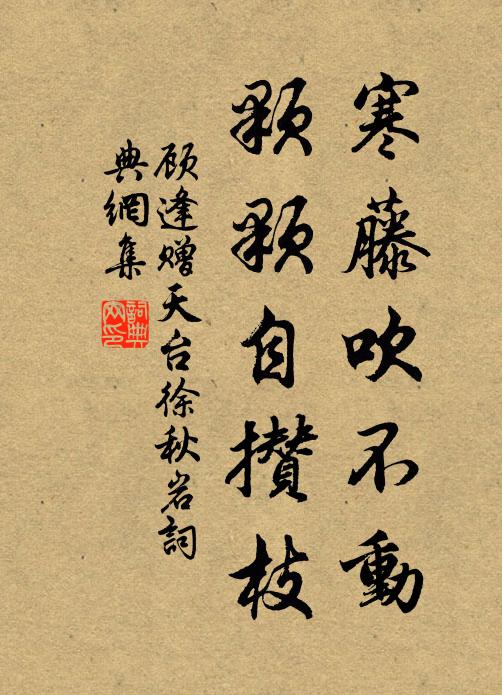 寒藤吹不動
顆顆自攢枝
顾逢赠天台徐秋岩詞
典網集
詞典
网印